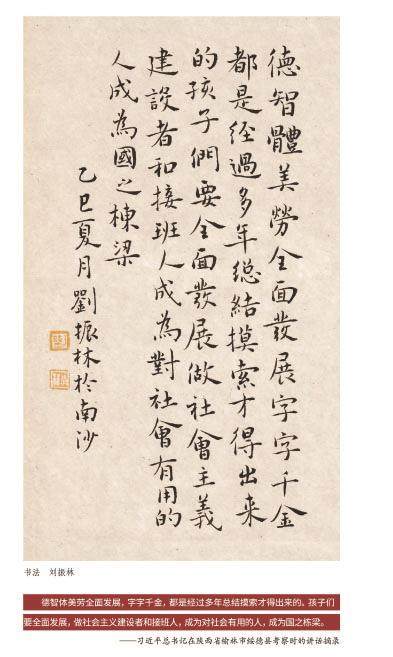 德智體美勞全面發展字字千金
都是经過多年總結摸索才得出来
的孩子們要全面發展做社會主義
建設者和接班人成為對社會有用的
人成為國之棟梁
乙巳夏月劉振林於南沙
书法 刘振林
德智体美劳全面发展，字字千金，都是经过多年总结摸索才得出来的。孩子们
要全面发展，做社会主义建设者和接班人，成为对社会有用的人，成为国之栋梁。
——习近平总书记在陕西省榆林市绥德县考察时的讲话摘录